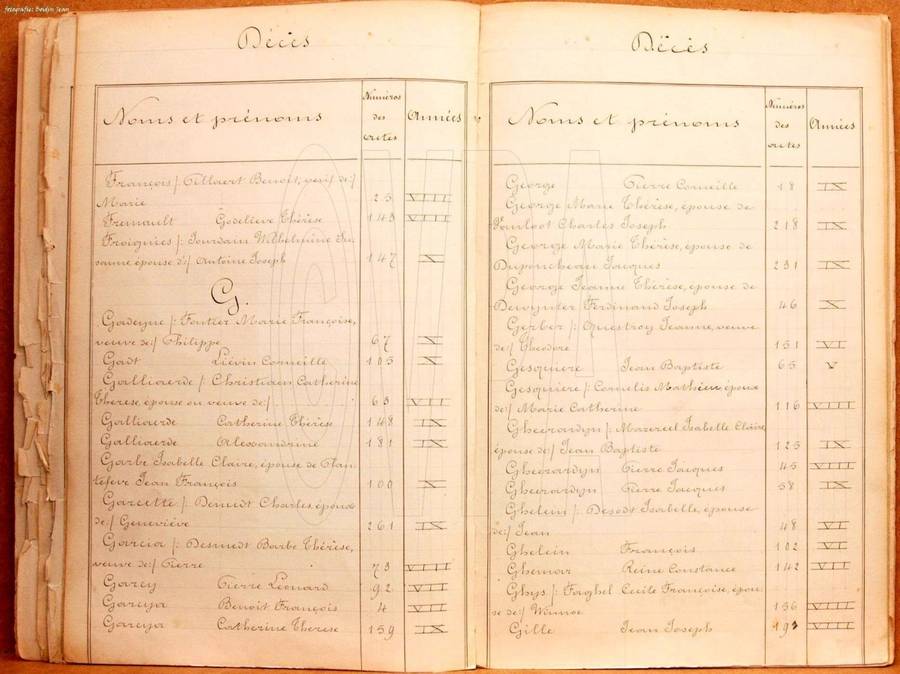 fotografie: Boidin Jean
Décès
Noms et prénoms
Numéros des actes
Années
François /: Tillaert Benoit, veuf de:/
Marie 23 VIII
Fremault Godelieve Thérèse 143 VIII
Froignies /: Jourdain Wilhelmine Su-
sanne épouse d:/ Antoine Joseph 147 X
G.
Gadeyne /: Foutier Marie Françoise,
veuve de:/ Philippe 67 X
Gadt Liévin Corneille 105 X
Galliaerde /: Christiaen Catherine
Thérèse épouse ou veuve de:/ 63 VIII
Galliaerde Catherine Thérèse 148 IX
Galliaerde Alessandrine 181 IX
Garbe Isabelle Claire, épouse de Plan-
tefeve Jean François 100 X
Garcette /: Benedt Charles époux
de:/ Geneviève 261 IX
Garcia /: Desmedt Barbe Thérèse,
veuve de:/ Pierre 73 VIII
Garcy Pierre Léonard 92 VII
Gareya Benoit François 4 VII
Gareya Catherine Therese 159 IX
Décès
Noms et prénoms
Numéros des actes
Années
George Pierre Corneille 18 IX
George Marie Thérèse, épouse de
Pourloot Charles Joseph 218 IX
George Marie Thérèse, épouse de
Duponcheau Jacques 231 IX
George Jeanne Thérèse, épouse de
Dewynter Ferdinand Joseph 46 X
Gerber /: Questroy Jeanne, veuve
de:/ Theodore 151 VI
Gesquiere Jean Baptiste 65 V
Gesquiere /: Cornelis Mathieu époux
de:/ Marie Catherine 116 VIII
Gheerardyn /: Mazereel Isabelle Claire
épouse de:/ Jean Baptiste 125 IX
Gheerardyn Pierre Jacques 45 VIII
Gheerardyn Pierre Jacques 58 IX
Ghelein /: Desodt Isabelle, épouse
de:/ Jean 48 VI
Ghelein François 102 VI
Ghemar Reine Constance 142 VII
Ghys /: Faghel Cecile Françoise, épou-
se de:/ Winnoc 136 VIII
Gille Jean Joseph 193 VIII